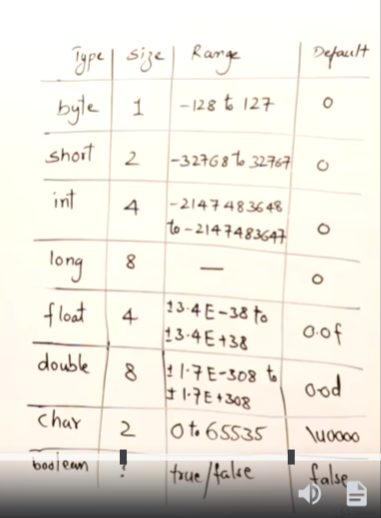 Type Size Range Default
byte 1 -128 to 127 0
short 2 -32768 to 32767 0
int 4 -2147483648
to -2147483647 0
long 8 — 0
float 4 ±3.4E-38 to
±3.4E+38 0.0f
double 8 ±1.7E-308 to
±1.7E+308 0.0d
char 2 0 to 65535 \u0000
boolean true/false false